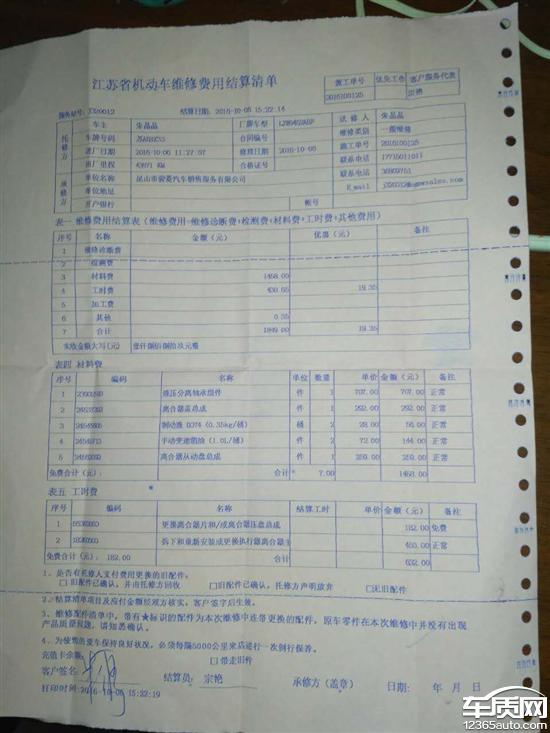 江苏省机动车维修费用结算清单
派工单号 优先工位 客户服务代表
2016100125 宗艳
结算日期: 2016-10-06 15:22:14
托修方
车主 朱晶晶 厂牌车型 送修人 朱晶晶
车牌号码 合同编号 维修类别 一般维修
进厂日期 2016-10-06 11:27:57 修竣日期 2016-10-06 施工单号 2016100125
出厂里程 合格证号 联系电话
承修方
单位名称 昆山市骏菱汽车销售服务有限公司 联系电话
单位地址 E_mail
开户银行 帐号
表一 维修费用结算表(维修费用=维修诊断费+检测费+材料费+工时费+其他费用)
序号 名称 金额(元) 优惠(元) 备注
1 维修诊断费
2 检测费
3 材料费 1458.00
4 工时费 430.65 19.35
5 加工费
6 其他 0.35
7 合计 1889.00 19.35
实收金额大写(元) 壹仟捌佰捌拾玖元整
表四 材料费
序号 编码 名称 单位 数量 单价 金额(元) 备注
1 液压分离轴承组件 件 1 707.00 707.00 正常
2 离合器盖总成 件 1 292.00 292.00 正常
3 制动液 DOT4 (0.35kg/桶) 桶 2 28.00 56.00 正常
4 手动变速箱油 (1.0L/桶) 件 2 72.00 144.00 正常
5 离合器从动盘总成 件 1 259.00 259.00 正常
免费合计(元): 合计 7.00 1458.00
表五 工时费
序号 编码 名称 结算工时 单价 金额(元) 备注
1 更换离合器片和/或离合器压盘总成 182.00 免费
2 拆下和重新安装或更换执行器离合器主 450.00 正常
免费合计(元): 182.00 合计: 632.00
1、是否有托修人支付费用更换的旧配件:
□旧配件已确认,并由托修方回收 □旧配件已确认,托修方声明放弃 □无旧配件
2、结算清单项目及应付金额经双方核实,客户签字后生效。
3、维修配件清单中,带有★标识的配件为本次维修中连带更换的配件,原车零件在本次维修中并没有出现
产品质量问题,请知悉确认。
4、为使您的爱车保持良好状况,必须每隔5000公里来店进行一次例行保养。
充值卡余额: □带走旧件
客户签名: 结算员: 宗艳 承修方(盖章) 日期: 年 月 日
打印时间:2016-10-06 15:22:19
车质网
12365auto.com